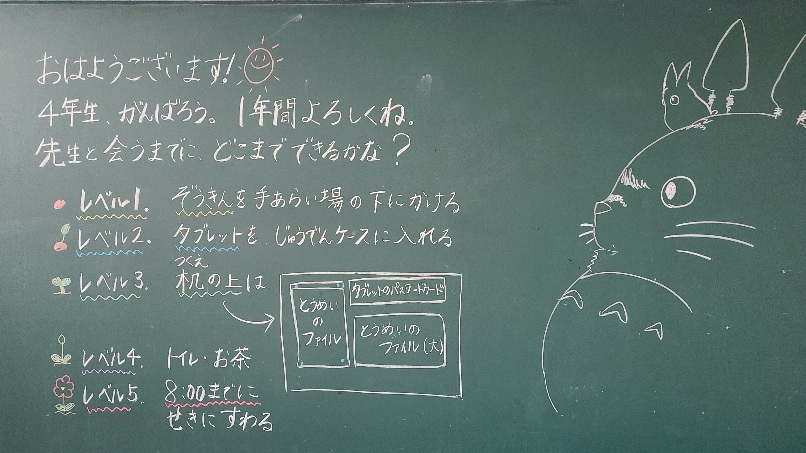 おはようございます!
4年生、がんばろう。1年間よろしくね。
先生と会うまでに、どこまでできるかな?
レベル1. ぞうきんを手あらい場の下にかける
レベル2. タブレットを、じゅうでんケースに入れる
つくえ
レベル3. 机の上は
とうめい
の
ファイル
タブレットのパスワードカード
とうめいの
ファイル(大)
レベル4. トイレ・お茶
レベル5. 8:00までに
せきにすわる